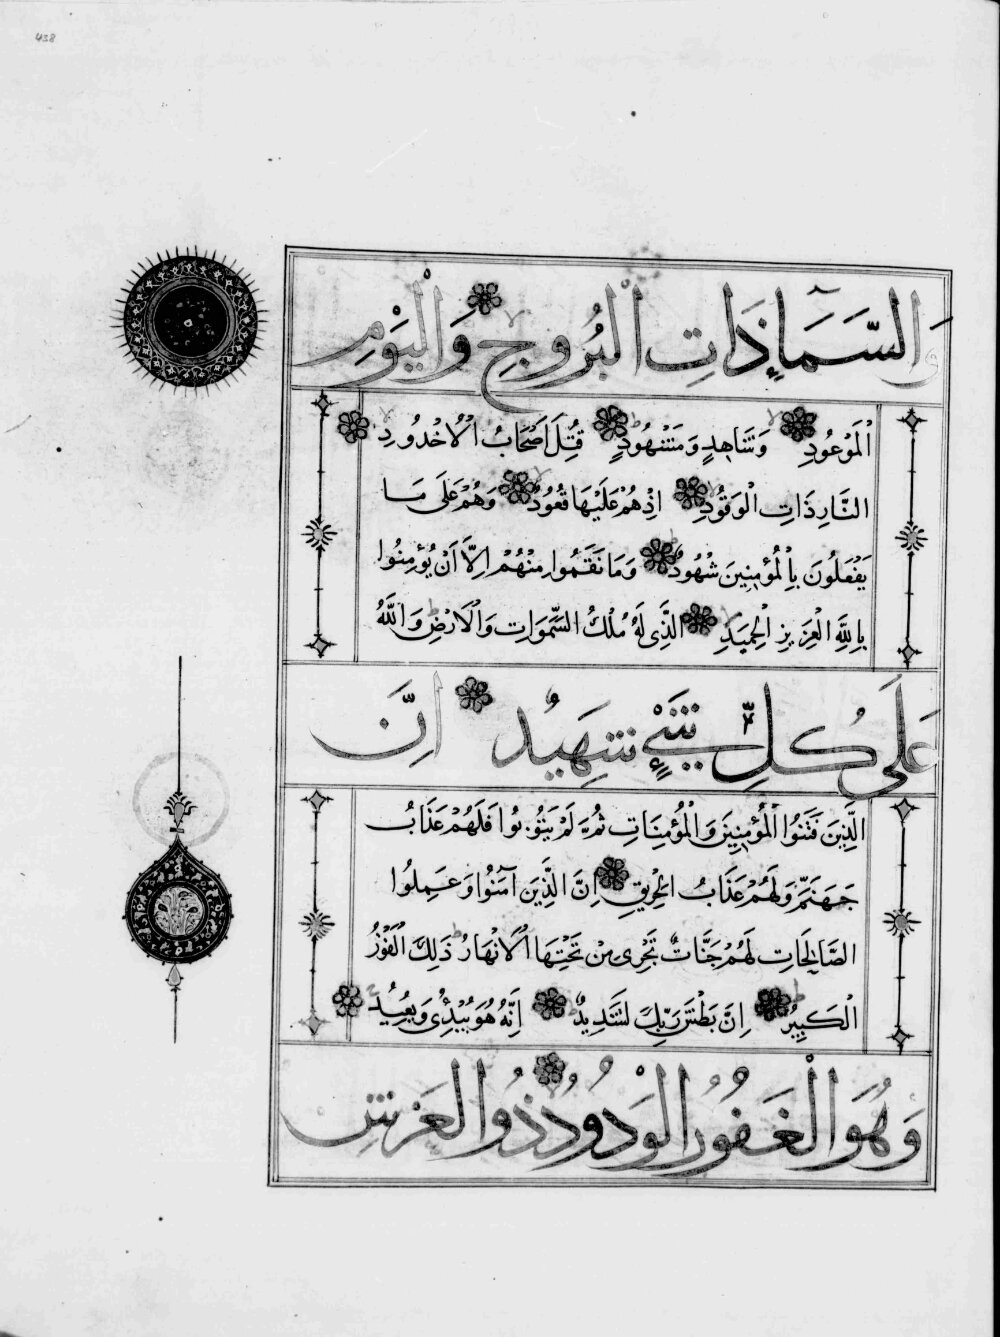 438
وَالسَّمَاءِ ذَاتِ الْبُرُوجِ وَالْيَوْمِ
الْمَوْعُودِ وَشَاهِدٍ وَمَشْهُودٍ قُتِلَ اَصْحَابُ الْاُخْدُودِ
النَّارِ ذَاتِ الْوَقُودِ اِذْ هُمْ عَلَيْهَا قُعُودٌ وَهُمْ عَلَى مَا
يَفْعَلُونَ بِالْمُؤْمِنِينَ شُهُودٌ وَمَا نَقَمُوا مِنْهُمْ اِلَّا اَنْ يُؤْمِنُوا
بِاللَّهِ الْعَزِيزِ الْحَمِيدِ الَّذِى لَهُ مُلْكُ السَّمَوَاتِ وَالْاَرْضِ وَاللَّهُ
عَلَى كُلِّ شَىْءٍ شَهِيدٌ اِنَّ
الَّذِينَ فَتَنُوا الْمُؤْمِنِينَ وَالْمُؤْمِنَاتِ ثُمَّ لَمْ يَتُوبُوا فَلَهُمْ عَذَابُ
جَهَنَّمَ وَلَهُمْ عَذَابُ الْحَرِيقِ اِنَّ الَّذِينَ آمَنُوا وَعَمِلُوا
الصَّالِحَاتِ لَهُمْ جَنَّاتٌ تَجْرِى مِنْ تَحْتِهَا الْاَنْهَارُ ذَلِكَ الْفَوْزُ
الْكَبِيرُ اِنَّ بَطْشَ رَبِّكَ لَشَدِيدٌ اِنَّهُ هُوَ يُبْدِئُ وَيُعِيدُ
وَهُوَ الْغَفُورُ الْوَدُودُ ذُو الْعَرْشِ